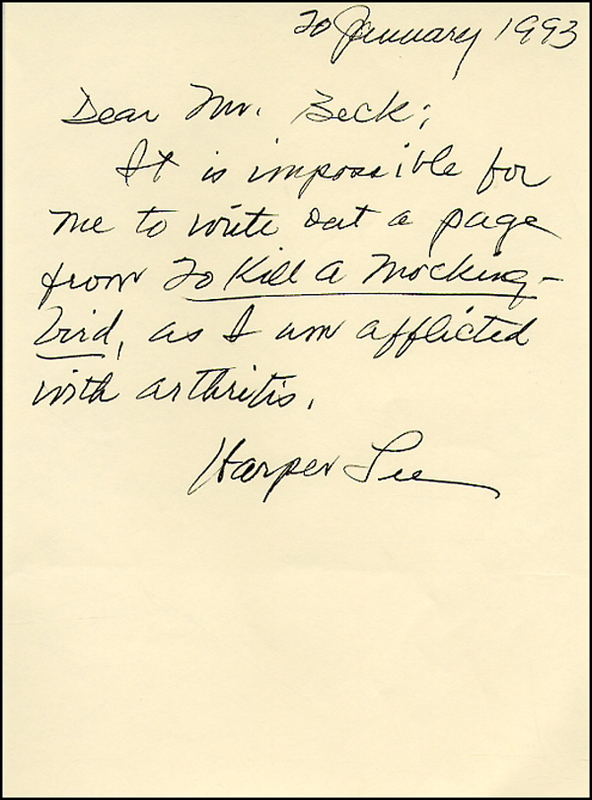 20 January 1993
Dear Mr. Beck;
It is impossible for
me to write out a page
from To Kill A Mocking-
bird, as I am afflicted
with arthritis.
Harper Lee